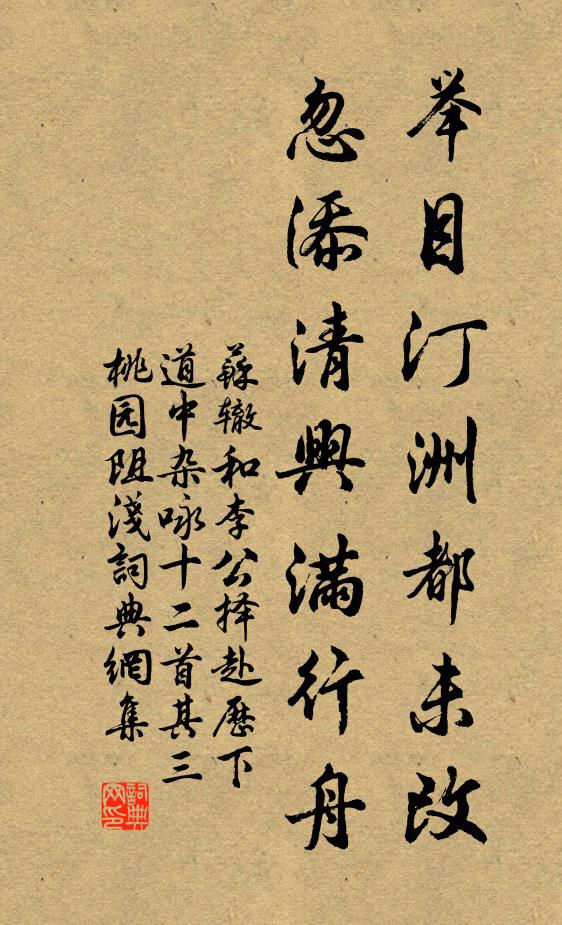 举目汀洲都未改
忽添清興满行舟
蘇辙和李公择赴歷下
道中杂咏十二首其三
桃园阻淺詞典網集
詞典网印